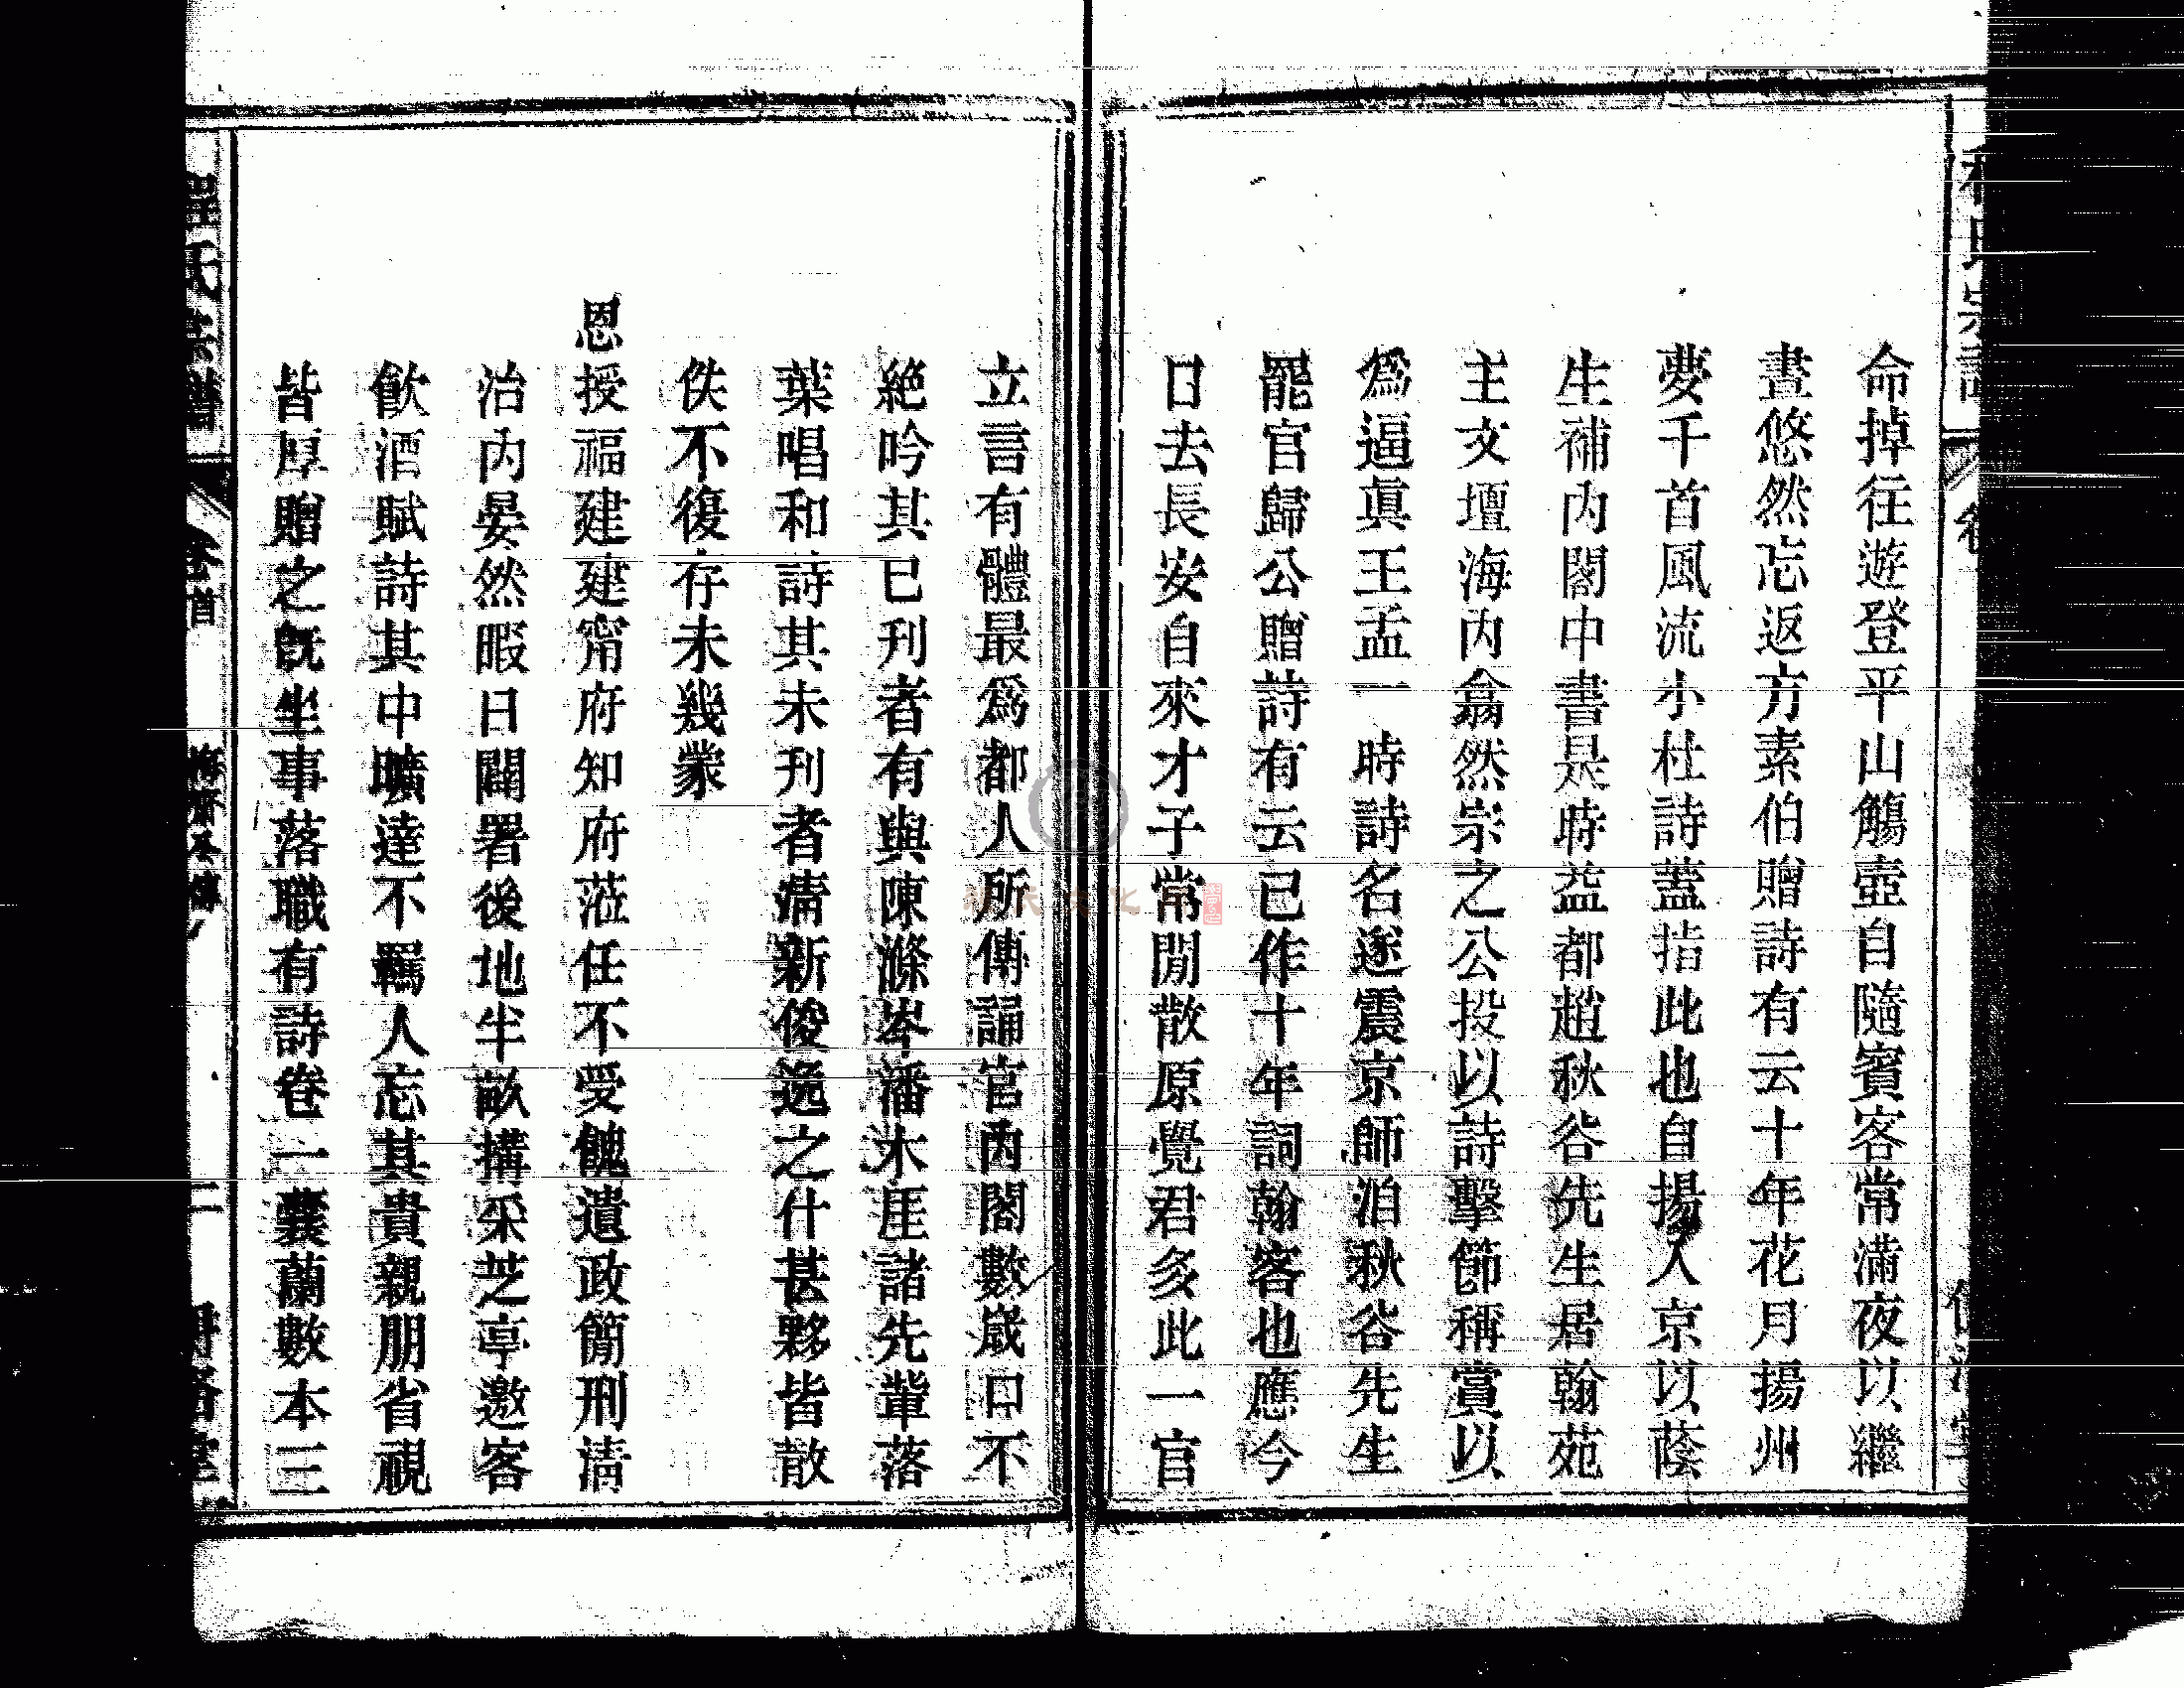 命掉往遊登平山觴壺自隨賓客常滿夜以繼
晝悠然忘返方素伯贈詩有云十年花月揚州
夢千首風流小杜詩蓋指此也自揚入京以蔭
生補內閣中書是時益都趙秋谷先生居翰苑
主文壇海內翕然宗之公投以詩擊節稱賞以
為逼真王孟一時詩名遂震京師洎秋谷先生
罷官歸公贈詩有云已作十年詞翰客也應今
日去長安自來才子常閒散原覺君多此一官
立言有體最為都人所傳誦官內閣數歲口不
絕吟其已刊者有與陳滌岑潘木厓諸先輩落
葉唱和詩其未刊者清新俊逸之什甚夥皆散
佚不復存未幾蒙
恩授福建建甯府知府蒞任不受餽遺政簡刑清
治內晏然暇日闢署後地半畝搆采芝亭邀客
飲酒賦詩其中曠達不羈人忘其貴親朋省視
皆厚贈之既坐事落職有詩卷一囊蘭數本三
卷首
二